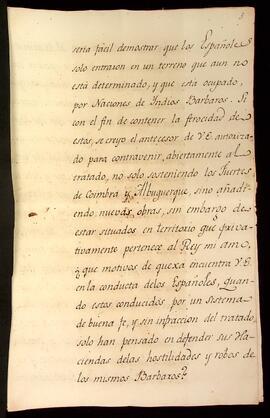 seria facil demostrar que los Españoles
solo entraron en un terreno que aun no
está determinado, y que está ocupado,
por Naciones de Indios Barbaros. Si
con el fin de contener la ferocidad de
estos, se creyo el antecesor de V.E. autoriza-
do para contravenir, abiertamente al
tratado, no solo sosteniendo los Fuertes
de Coimbra y Albuquerque, sino añadi-
endo nuevas obras, sin embargo de
estar situados en territorio que priva-
tivamente pertenece al Rey mi amo,
¿que motivos de quexa encuentra V.E.
en la conducta delos Españoles, quan-
do estos conducidos por un sistema
de buena fe, y sin infraccion del tratado,
solo han pensado en defender sus Ha-
ciendas delas hostilidades y robos de
los mismos Barbaros?